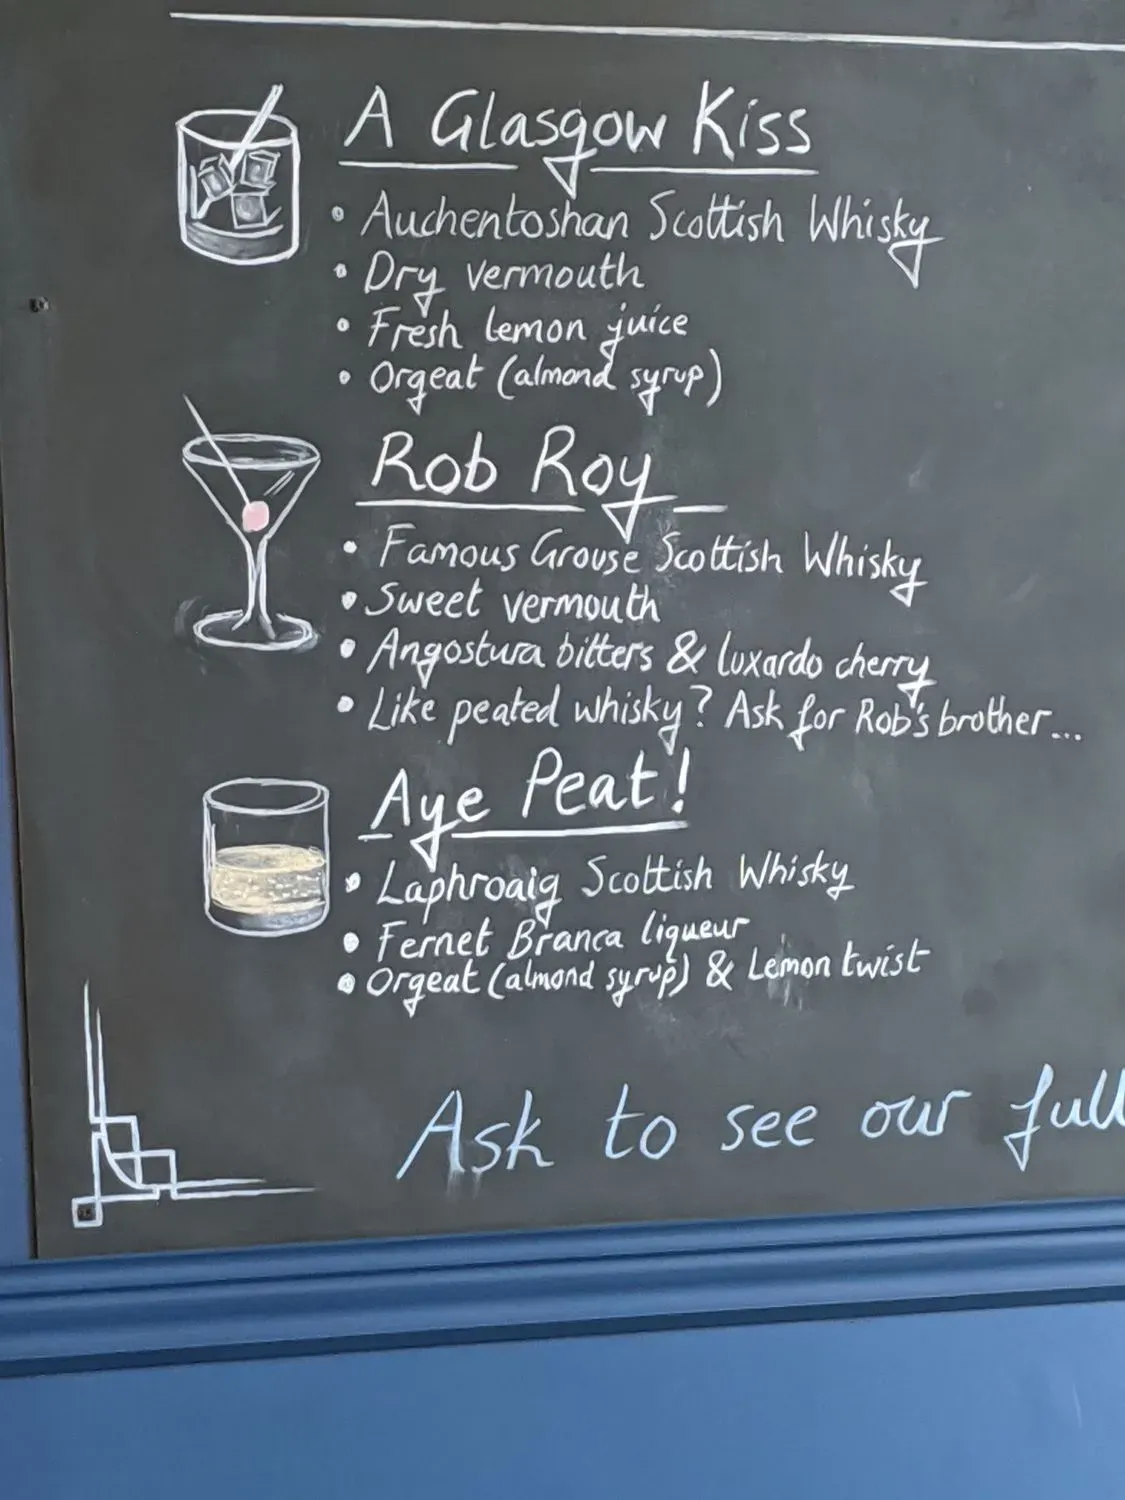 A Glasgow Kiss
• Auchentoshan Scottish Whisky
• Dry vermouth
• Fresh lemon juice
• Orgeat (almond syrup)
Rob Roy
• Famous Grouse Scottish Whisky
• Sweet vermouth
• Angostura bitters & luxardo cherry
• Like peated whisky? Ask for Rob's brother...
Aye Peat!
• Laphroaig Scottish Whisky
• Fernet Branca liqueur
• Orgeat (almond syrup) & Lemon twist
Ask to see our full